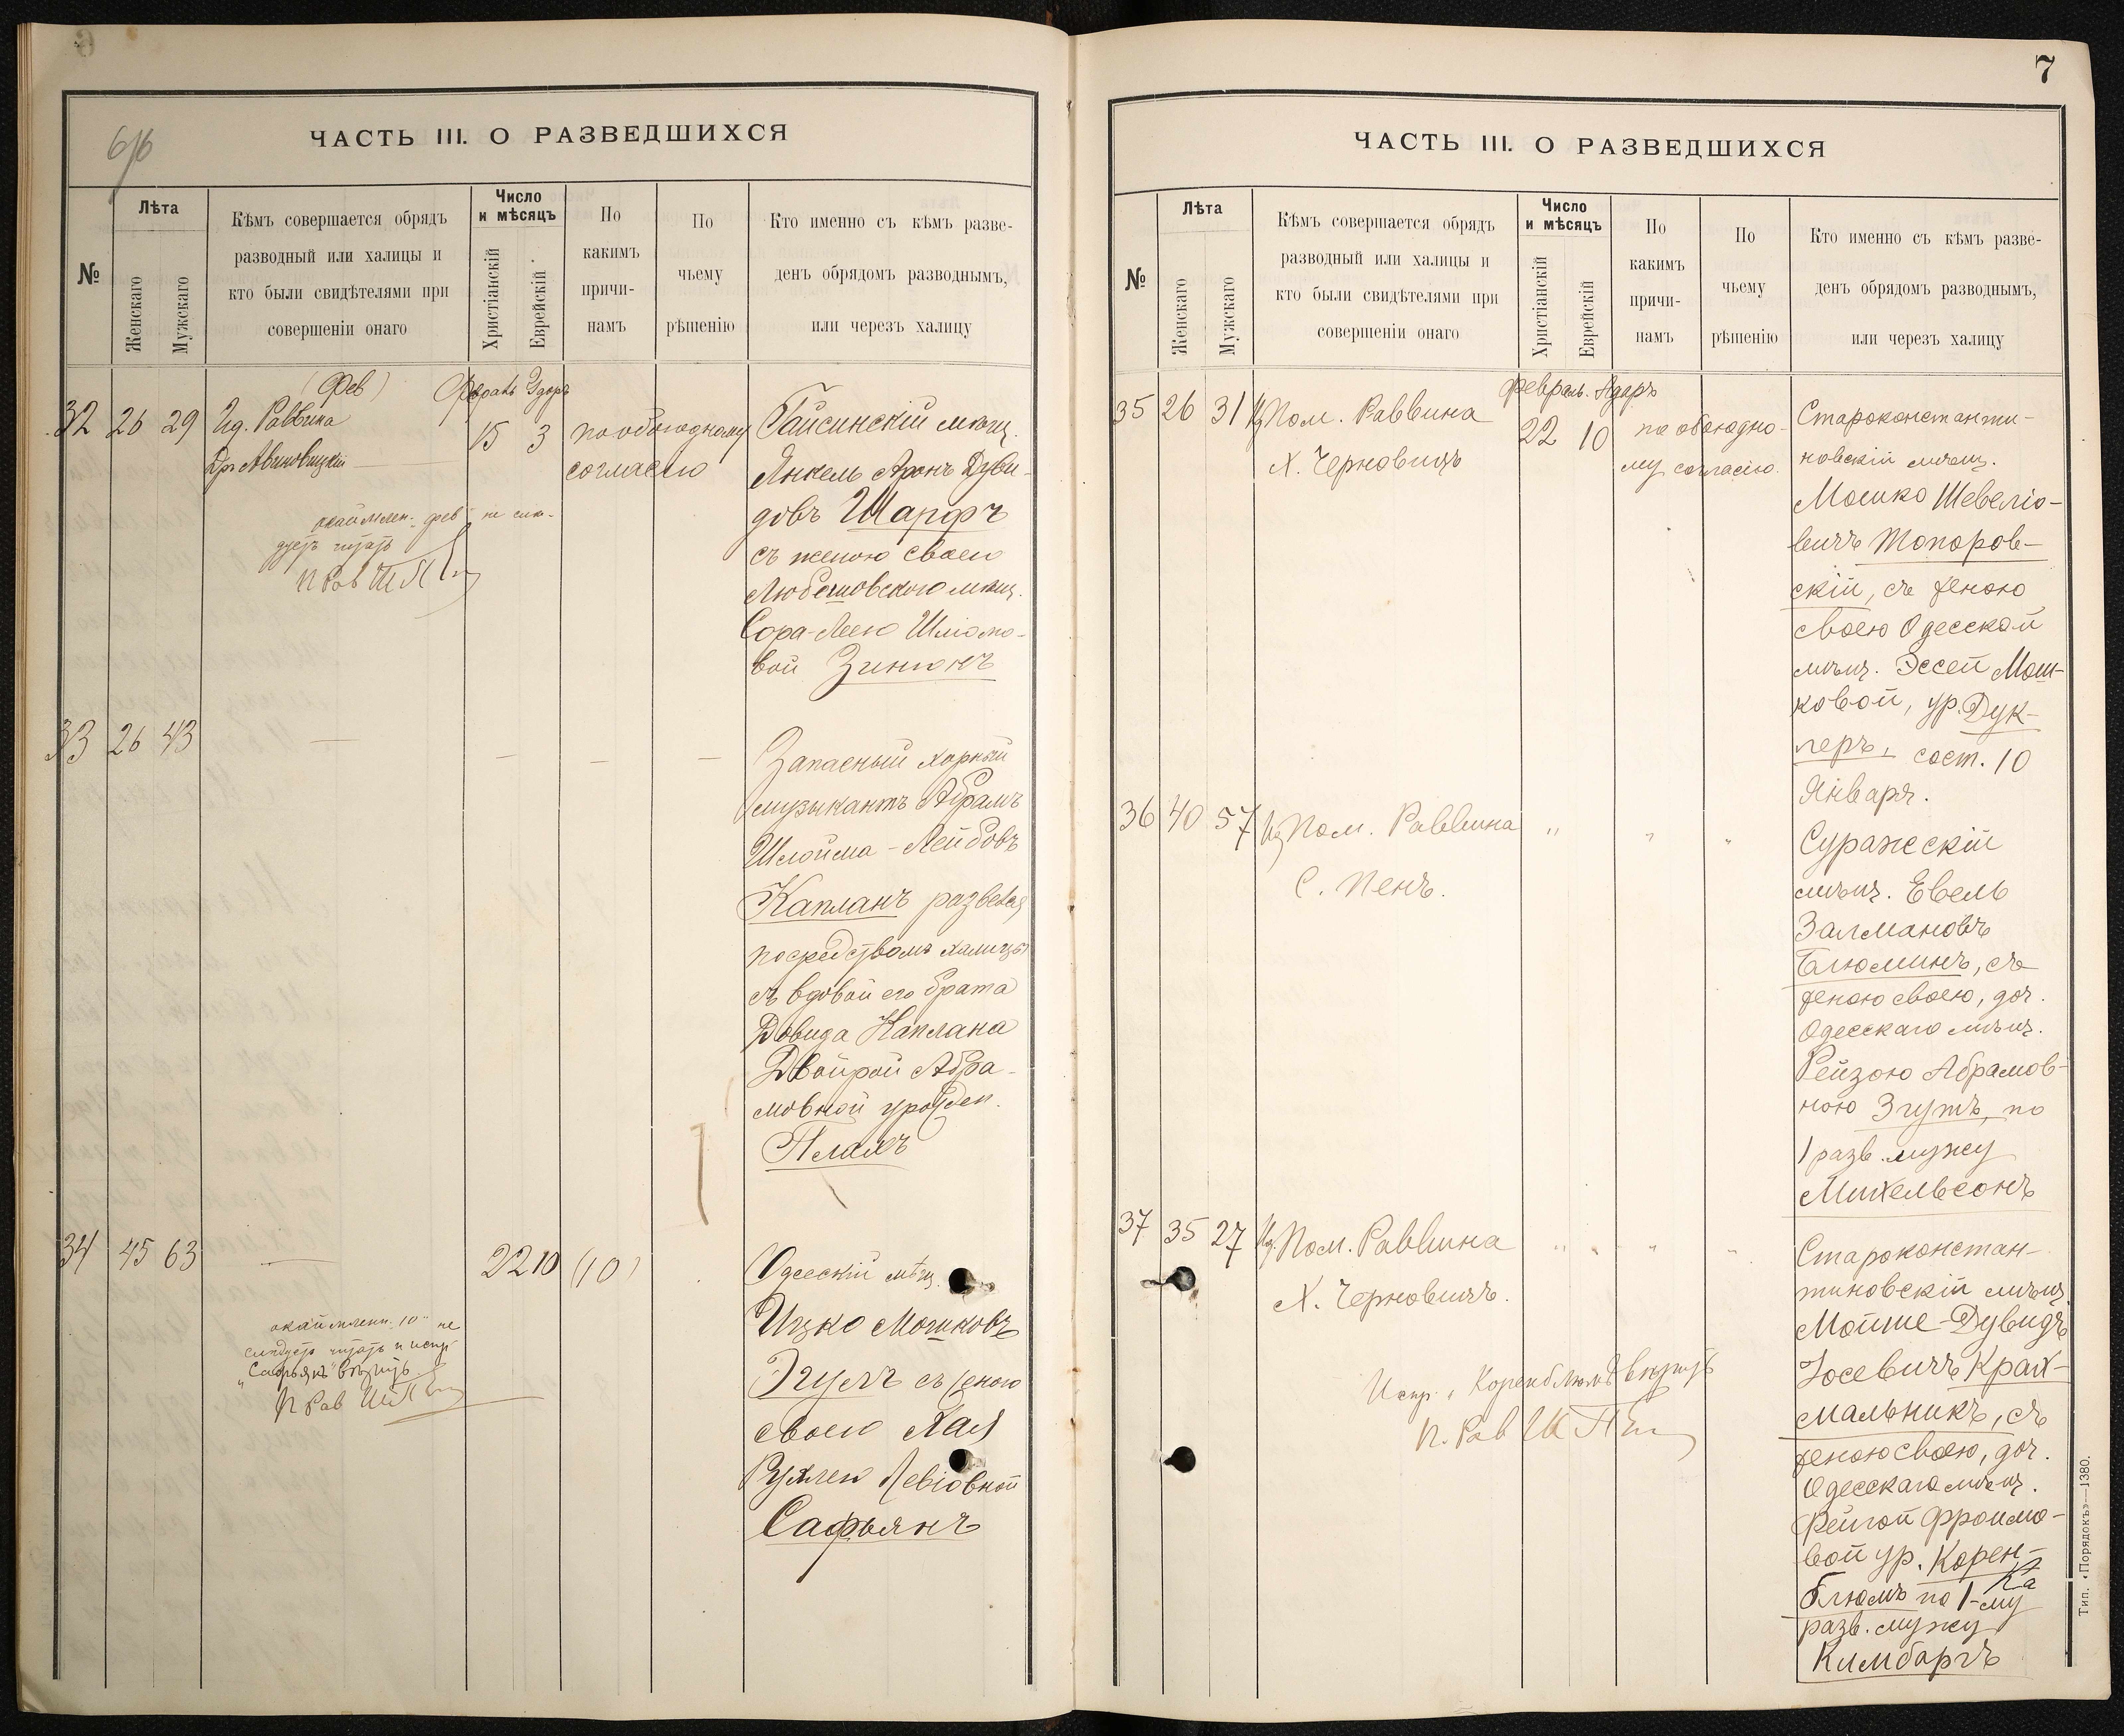 6
6/6
ЧАСТЬ III. О РАЗВЕДШИХСЯ
№
Лѣта
Женскаго
Мужскаго
Кѣмъ совершается обрядъ
разводный или халицы и
кто были свидѣтелями при
совершеніи онаго
Число
и мѣсяцъ
Христіанскій
Еврейскій
По
какимъ
причи-
намъ
По
чьему
рѣшенію
Кто именно съ кѣмъ разве-
денъ обрядомъ разводнымъ,
или черезъ халицу
(Фев)
32 26 29
Раввина
15 3
по обоюдному
согласію
Гайсинскій мѣщ.
Янкель Аронъ Дуви-
довъ Шарфъ
съ женою своею
Любешовскою мѣщ.
Сора-Леею Шліомо-
вой Зинюкъ
окаймлен. фев не слѣ-
дуетъ читать
П Рав
33 26 43
—
—
—
—
Запасный хорный
музыкантъ Абрамъ
Шлойма-Лейбовъ
Капланъ развелся
посредствомъ халицы
съ вдовой его брата
Довида Каплана
Двойрой Абра-
мовной урожден.
34 45 63
—
22 10 (10)
Одесскій мѣщ.
Ицко Мошковъ
съ женою
своею Хая
Рухлею Левіовной
Сафьянъ
окаймленн. 10" не
слѣдуетъ читать и испр.
„Сафьянъ" вѣрить
П Рав
7
ЧАСТЬ III. О РАЗВЕДШИХСЯ
№
Лѣта
Женскаго
Мужскаго
Кѣмъ совершается обрядъ
разводный или халицы и
кто были свидѣтелями при
совершеніи онаго
Число
и мѣсяцъ
Христіанскій
Еврейскій
По
какимъ
причи-
намъ
По
чьему
рѣшенію
Кто именно съ кѣмъ разве-
денъ обрядомъ разводнымъ,
или черезъ халицу
Февраль. Адаръ
35 26 31
Пом. Раввина
Х. Черновичъ
22 10
по обоюдно-
му согласію.
Староконстанти-
новскій мѣщ.
Мошко Шевеліо-
вичъ Топоров-
скій, съ женою
своею Одесской
мѣщ. Эссей Мош-
ковой, ур. Дук-
леръ, сост. 10
Января.
36 40 57
Пом. Раввина
С. Пенъ.
"
"
"
Суражскій
мѣщ. Евель
Залмановъ
Блюминъ, съ
женою своею, доч.
Одесскаго мѣщ.
Рейзою Абрамов-
ною Згутъ, по
1 разв. мужу
Михельсонъ
37 35 27
Пом. Раввина
Х. Черновичъ.
"
"
"
"
Староконстан-
тиновскій мѣщ.
Мойше-Дувидъ
Іосевичъ Крах-
мальникъ, съ
женою своею, доч.
Одесскаго мѣщ.
Фейгой Фроимо-
вой ур. Корен-
блюмъ по 1-му
разв. мужу
Кимбаргъ
Испр. „Коренблюмъ" вѣрить
П. Рав
Тип. «Порядокъ»—1380.